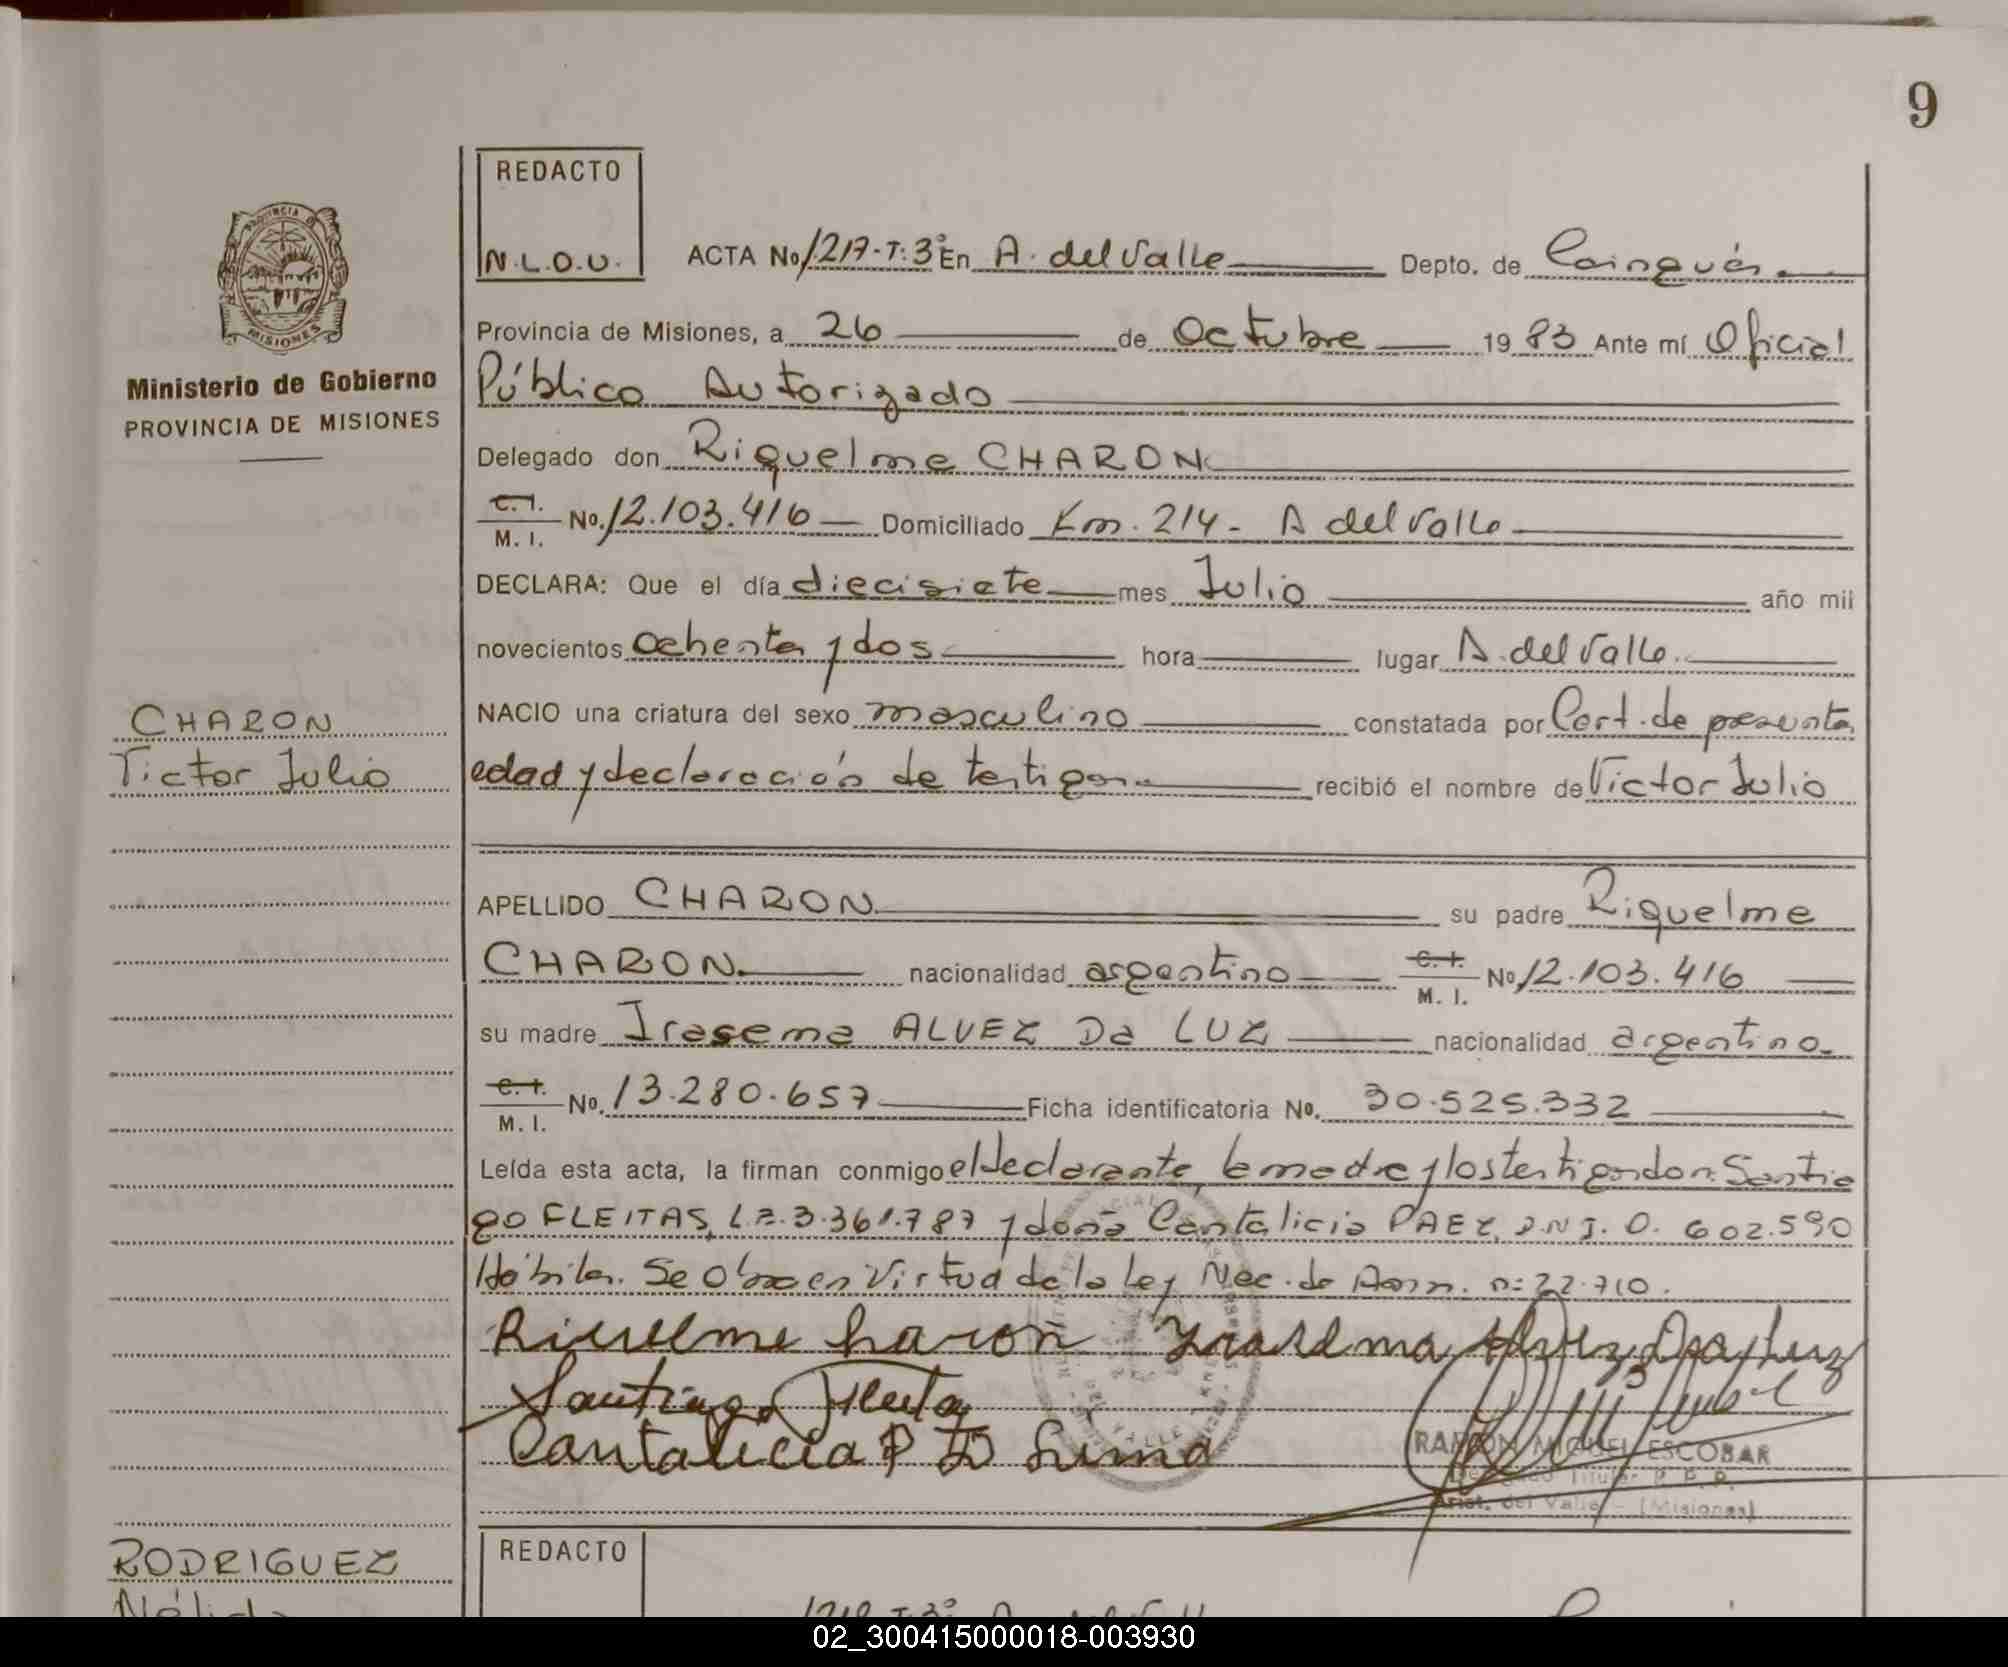 9
REDACTO
N.L.O.U.
ACTA No 1.217-T:3º En A. del Valle Depto. de Cainguás.
PROVINCIA D
MISIONES
Ministerio de Gobierno
PROVINCIA DE MISIONES
Provincia de Misiones, a 26 de Octubre 1983 Ante mí Oficial
Público Autorizado
Delegado don Riquelme CHARON
C. I.
M. I. No. 12.103.416 Domiciliado Km. 214- A del Valle
DECLARA: Que el día diecisiete mes Julio año mil
novecientos ochenta y dos hora lugar A. del Valle.
CHARON
Victor Julio
NACIO una criatura del sexo masculino constatada por Cert. de presunta
edad y declaración de testigos. recibió el nombre de Victor Julio
APELLIDO CHARON su padre Riquelme
CHARON. nacionalidad argentino C. I. M. I. No 12.103.416
su madre Irasema ALVEZ Da LUZ nacionalidad argentino.
C. I.
M. I. No. 13.280.657 Ficha identificatoria No. 30.525.332
Leída esta acta, la firman conmigo el declarante, la madre y los testigos don: Santia
go FLEITAS, L.E. 3.361.787 y doña Cantalicia PAEZ, D.N.I. 0.602.590
Hábiles. Se Obra en Virtud de la Ley Nac. de Amn. n: 22.710.
Riquelme haron Yrasema Alvez Da Luz
Santiago Fleita
Cantalicia P D Lima
RAMON MIGUEL ESCOBAR
Delegado Titular R. P. P.
Arist. del Valle - (Misiones)
RODRIGUEZ
Nélida
REDACTO
1218 T:3º A. del Valle
02_300415000018-003930